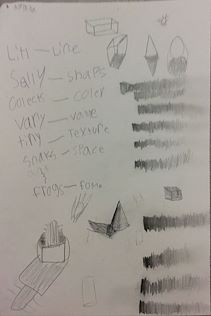 Lill — Line
Sally — shape
Colects — color
Vary — value
tiny — Texture
Snaks — space
and
Frogs — Form